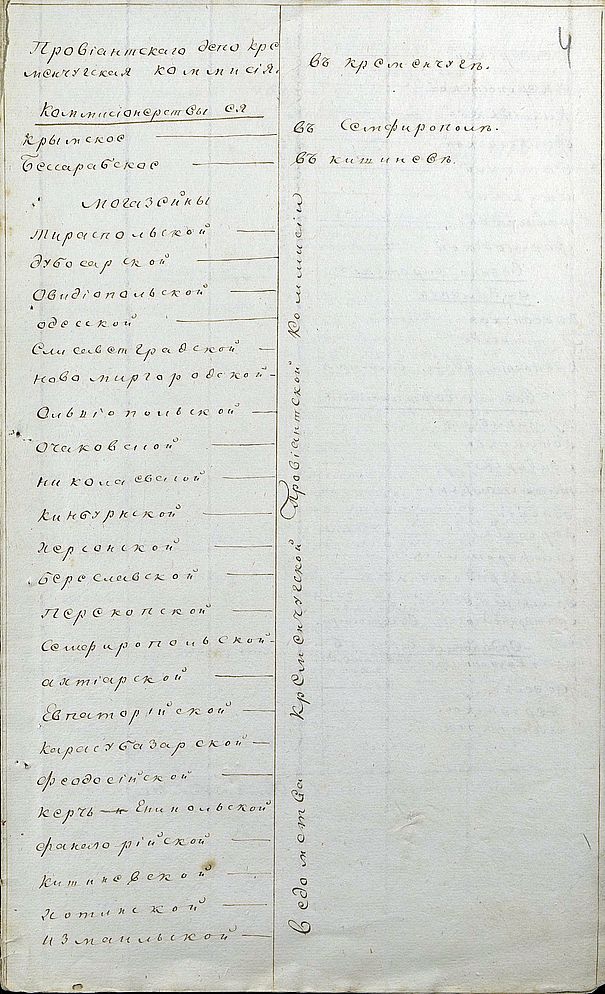 4
Провіантскаго депо кре
менчугская коммисія.
въ кременчугѣ.
Коммисіонерствы ея
крымское
въ Семфирополѣ.
Бессарабское
въ кишиневѣ.
могазейны
тираспольской
дубосарской
Овидіопольской
одесской
Елисаветградской
новомиргородской
Ольвіопольской
Очаковской
николаевской
Кинбурнской
Херсонской
береславской
Перекопской
Семфиропольской
ахтіарской
Евпаторійской
карасубазарской
феодосійской
керчь-Ениольской
фанагорійской
Кишиневской
Хотинской
измаильской
ведомства кременчугской Провіантской Коммисіи